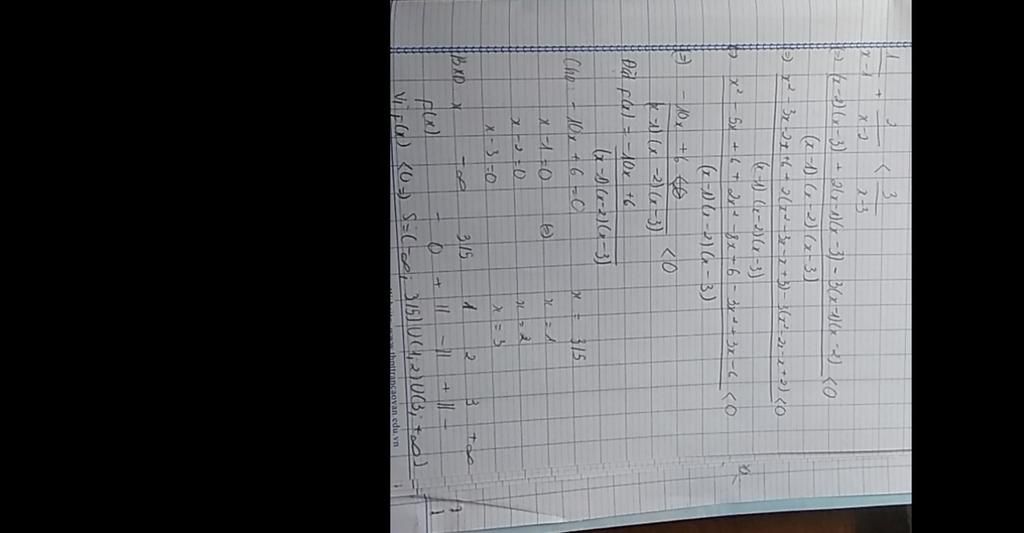 1/(x-1) + 2/(x-2) < 3/(x-3)
(=) ((x-2)(x-3) + 2(x-1)(x-3) - 3(x-1)(x-2))/((x-1)(x-2)(x-3)) <0
(=) (x² - 3x-2x+6 + 2(x²-3x-x+3) - 3(x²-2x-x+2))/((x-1)(x-2)(x-3)) <0
(x² - 5x + 6 + 2x² - 8x + 6 - 3x² + 3x - 6)/((x-1)(x-2)(x-3)) <0
(=) (-10x + 6)/((x-1)(x-2)(x-3)) <0
Đặt f(x) = (-10x + 6)/((x-1)(x-2)(x-3))
Cho: -10x + 6 = 0 x = 3/5
x-1=0 (=) x = 1
x-2=0 x = 2
x-3=0 x = 3
BXD x -∞ 3/5 1 2 3 +∞
f(x) - 0 + || - || + || -
Vì f(x) <0 =) S=(-∞; 3/5) U(1,2) U(3; +∞)
caovan.edu.vn